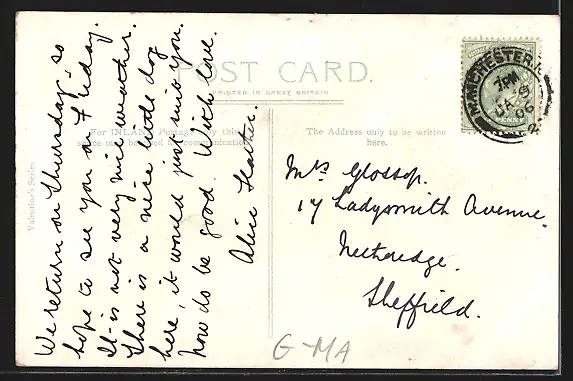 POST CARD.
PRINTED IN GREAT BRITAIN
For INLAND Postage only this
space may be used for communication.
The Address only to be written
here.
Valentine's Series
We return on Thursday, so
hope to see you on Friday.
It is not very nice weather.
There is a nice little dog
here, it would just suit you.
now do be good. With love.
Alice
Mrs Glossop.
17 Ladysmith Avenue.
Netheredge.
Sheffield.
MANCHESTER
JA
PENNY
G-MA